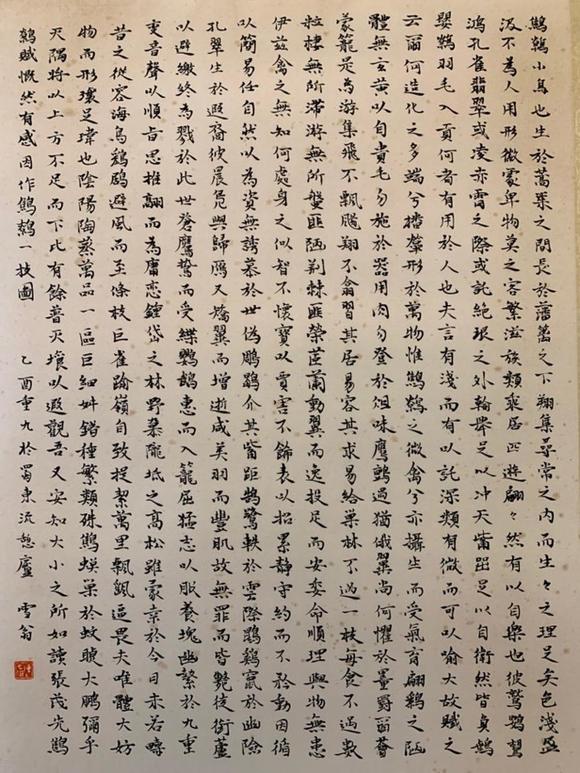 鷦鷯小鳥也生於蒿萊之間長於藩籬之下翔集尋常之內而生々之理足矣色淺體
陋不為人用形微處卑物莫之害繁滋族類乘居匹遊翩々然有以自樂也彼鷲鶚鵾
鴻孔雀翡翠或凌赤霄之際或託絕垠之外翰舉足以沖天觜距足以自衛然皆負矰
嬰繳羽毛入貢何者有用於人也夫言有淺而有以託深類有微而可以喻大故賦之
云爾何造化之多端兮播羣形於萬物惟鷦鷯之微禽兮亦攝生而受氣育翩翾之陋
體無玄黃以自貴毛勿施於器用肉勿登於俎味鷹鸇過猶俄翼尚何懼於罿罻翳薈
蒙籠是為游集飛不飄颺翔不翕習其居易容其求易給巢林不過一枝每食不過數
粒棲無所滯游無所盤匪陋荊棘匪榮茝蘭動翼而逸投足而安委命順理與物無患
伊茲禽之無知何處身之似智不懷寶以賈害不飾表以招累靜守約而不矜動因循
以簡易任自然以為資無誘慕於世偽鵰鶡介其觜距鵠鷺軼於雲際鶤雞竄於幽險
孔翠生於遐裔彼晨鳧與歸雁又矯翼而增逝咸美羽而豐肌故無罪而皆斃徒銜蘆
以避繳終為戮於此世蒼鷹鷙而受緤鸚鵡惠而入籠屈猛志以服養塊幽縶於九重
變音聲以順旨思摧翮而為庸戀鍾岱之林野慕隴坻之高松雖蒙幸於今日未若疇
昔之從容海鳥鶢鶋避風而至條枝巨雀踰嶺自致提挈萬里飄颻逼畏夫唯體大妨
物而形瓌足瑋也陰陽陶蒸萬品一區巨細舛錯種繁類殊鷦螟巢於蚊睫大鵬彌乎
天隅將以上方不足而下比有餘普天壤以遐觀吾又安知大小之所如讀張茂先鷦
鷯賦慨然有感因作鷦鷯一枝圖 乙酉重九於蜀東流憩廬 雪翁